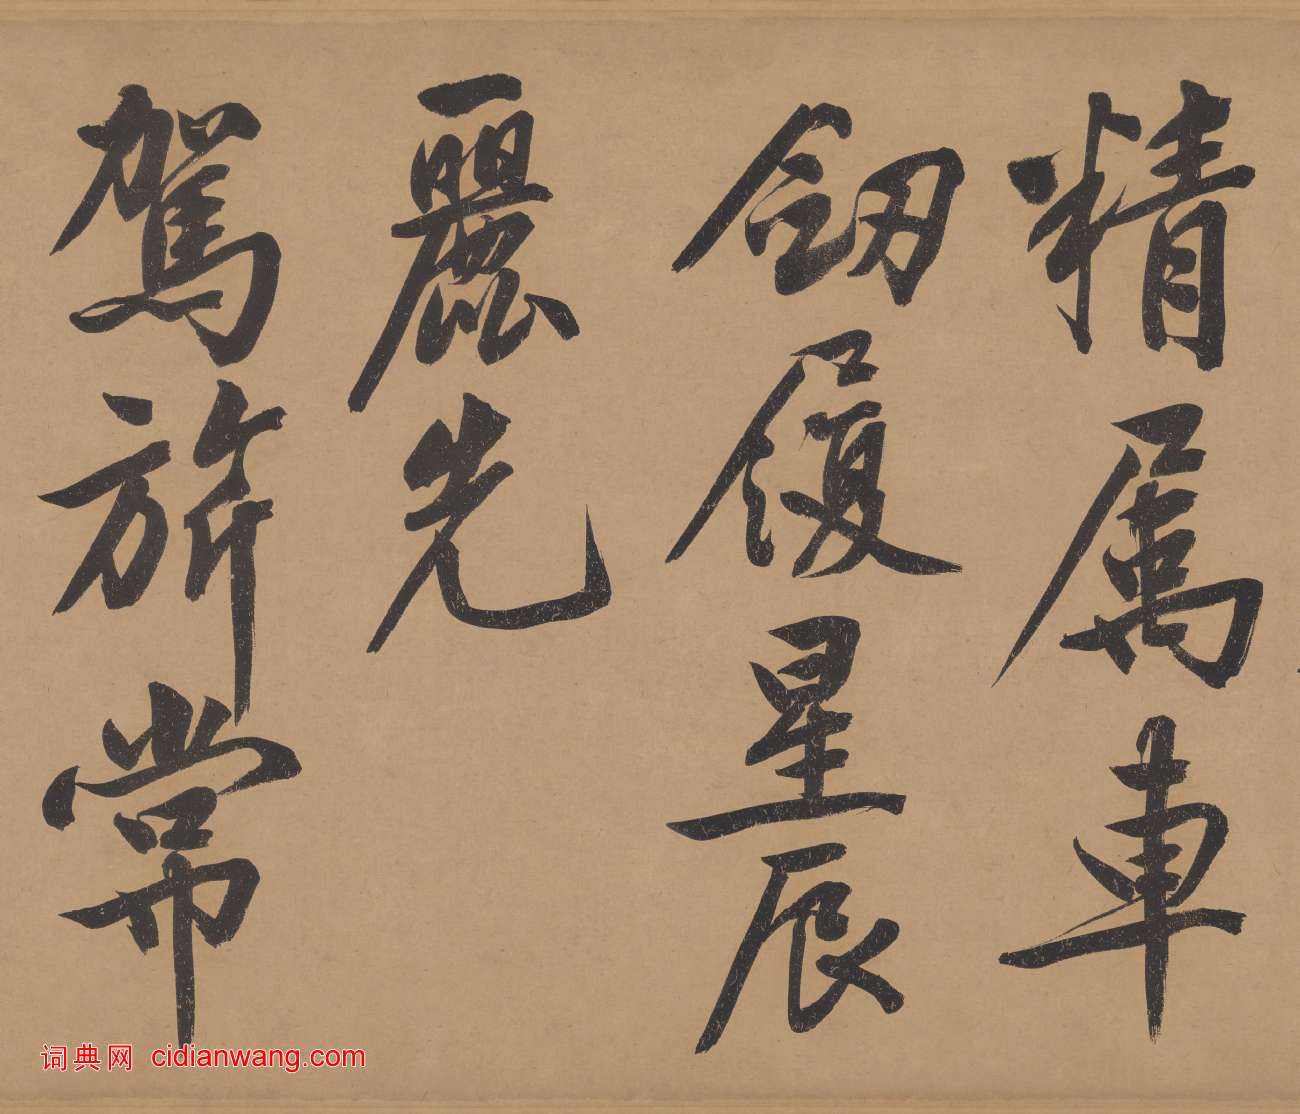 精属車
劒履星辰
麗先
駕旂常
词典网 cidianwang.com